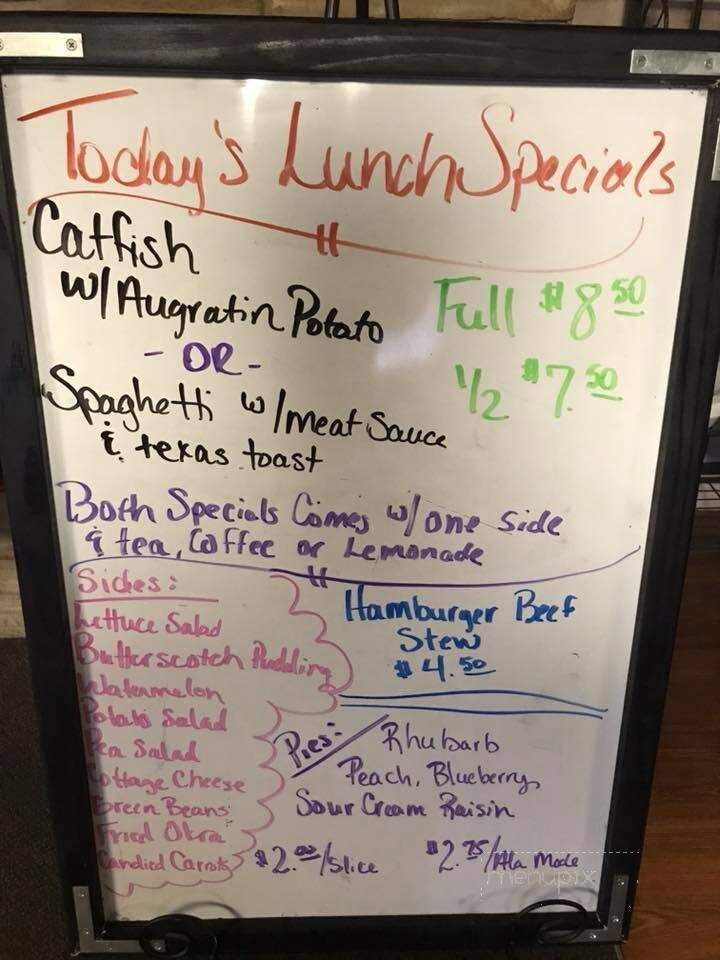 Today's Lunch Specials
Catfish
w/ Augratin Potato
- OR -
Spaghetti w/ meat Sauce
& texas toast
Full $8.50
1/2 $7.50
Both Specials Comes w/ one side
& tea, Coffee or Lemonade
Sides:
Lettuce Salad
Butterscotch Pudding
Watermelon
Potato Salad
Pea Salad
Cottage Cheese
Green Beans
Fried Okra
Candied Carrots
Hamburger Beef
Stew
$4.50
Pies: Rhubarb
Peach, Blueberry,
Sour Cream Raisin
$2.00/slice $2.75/Ala Mode
menupix